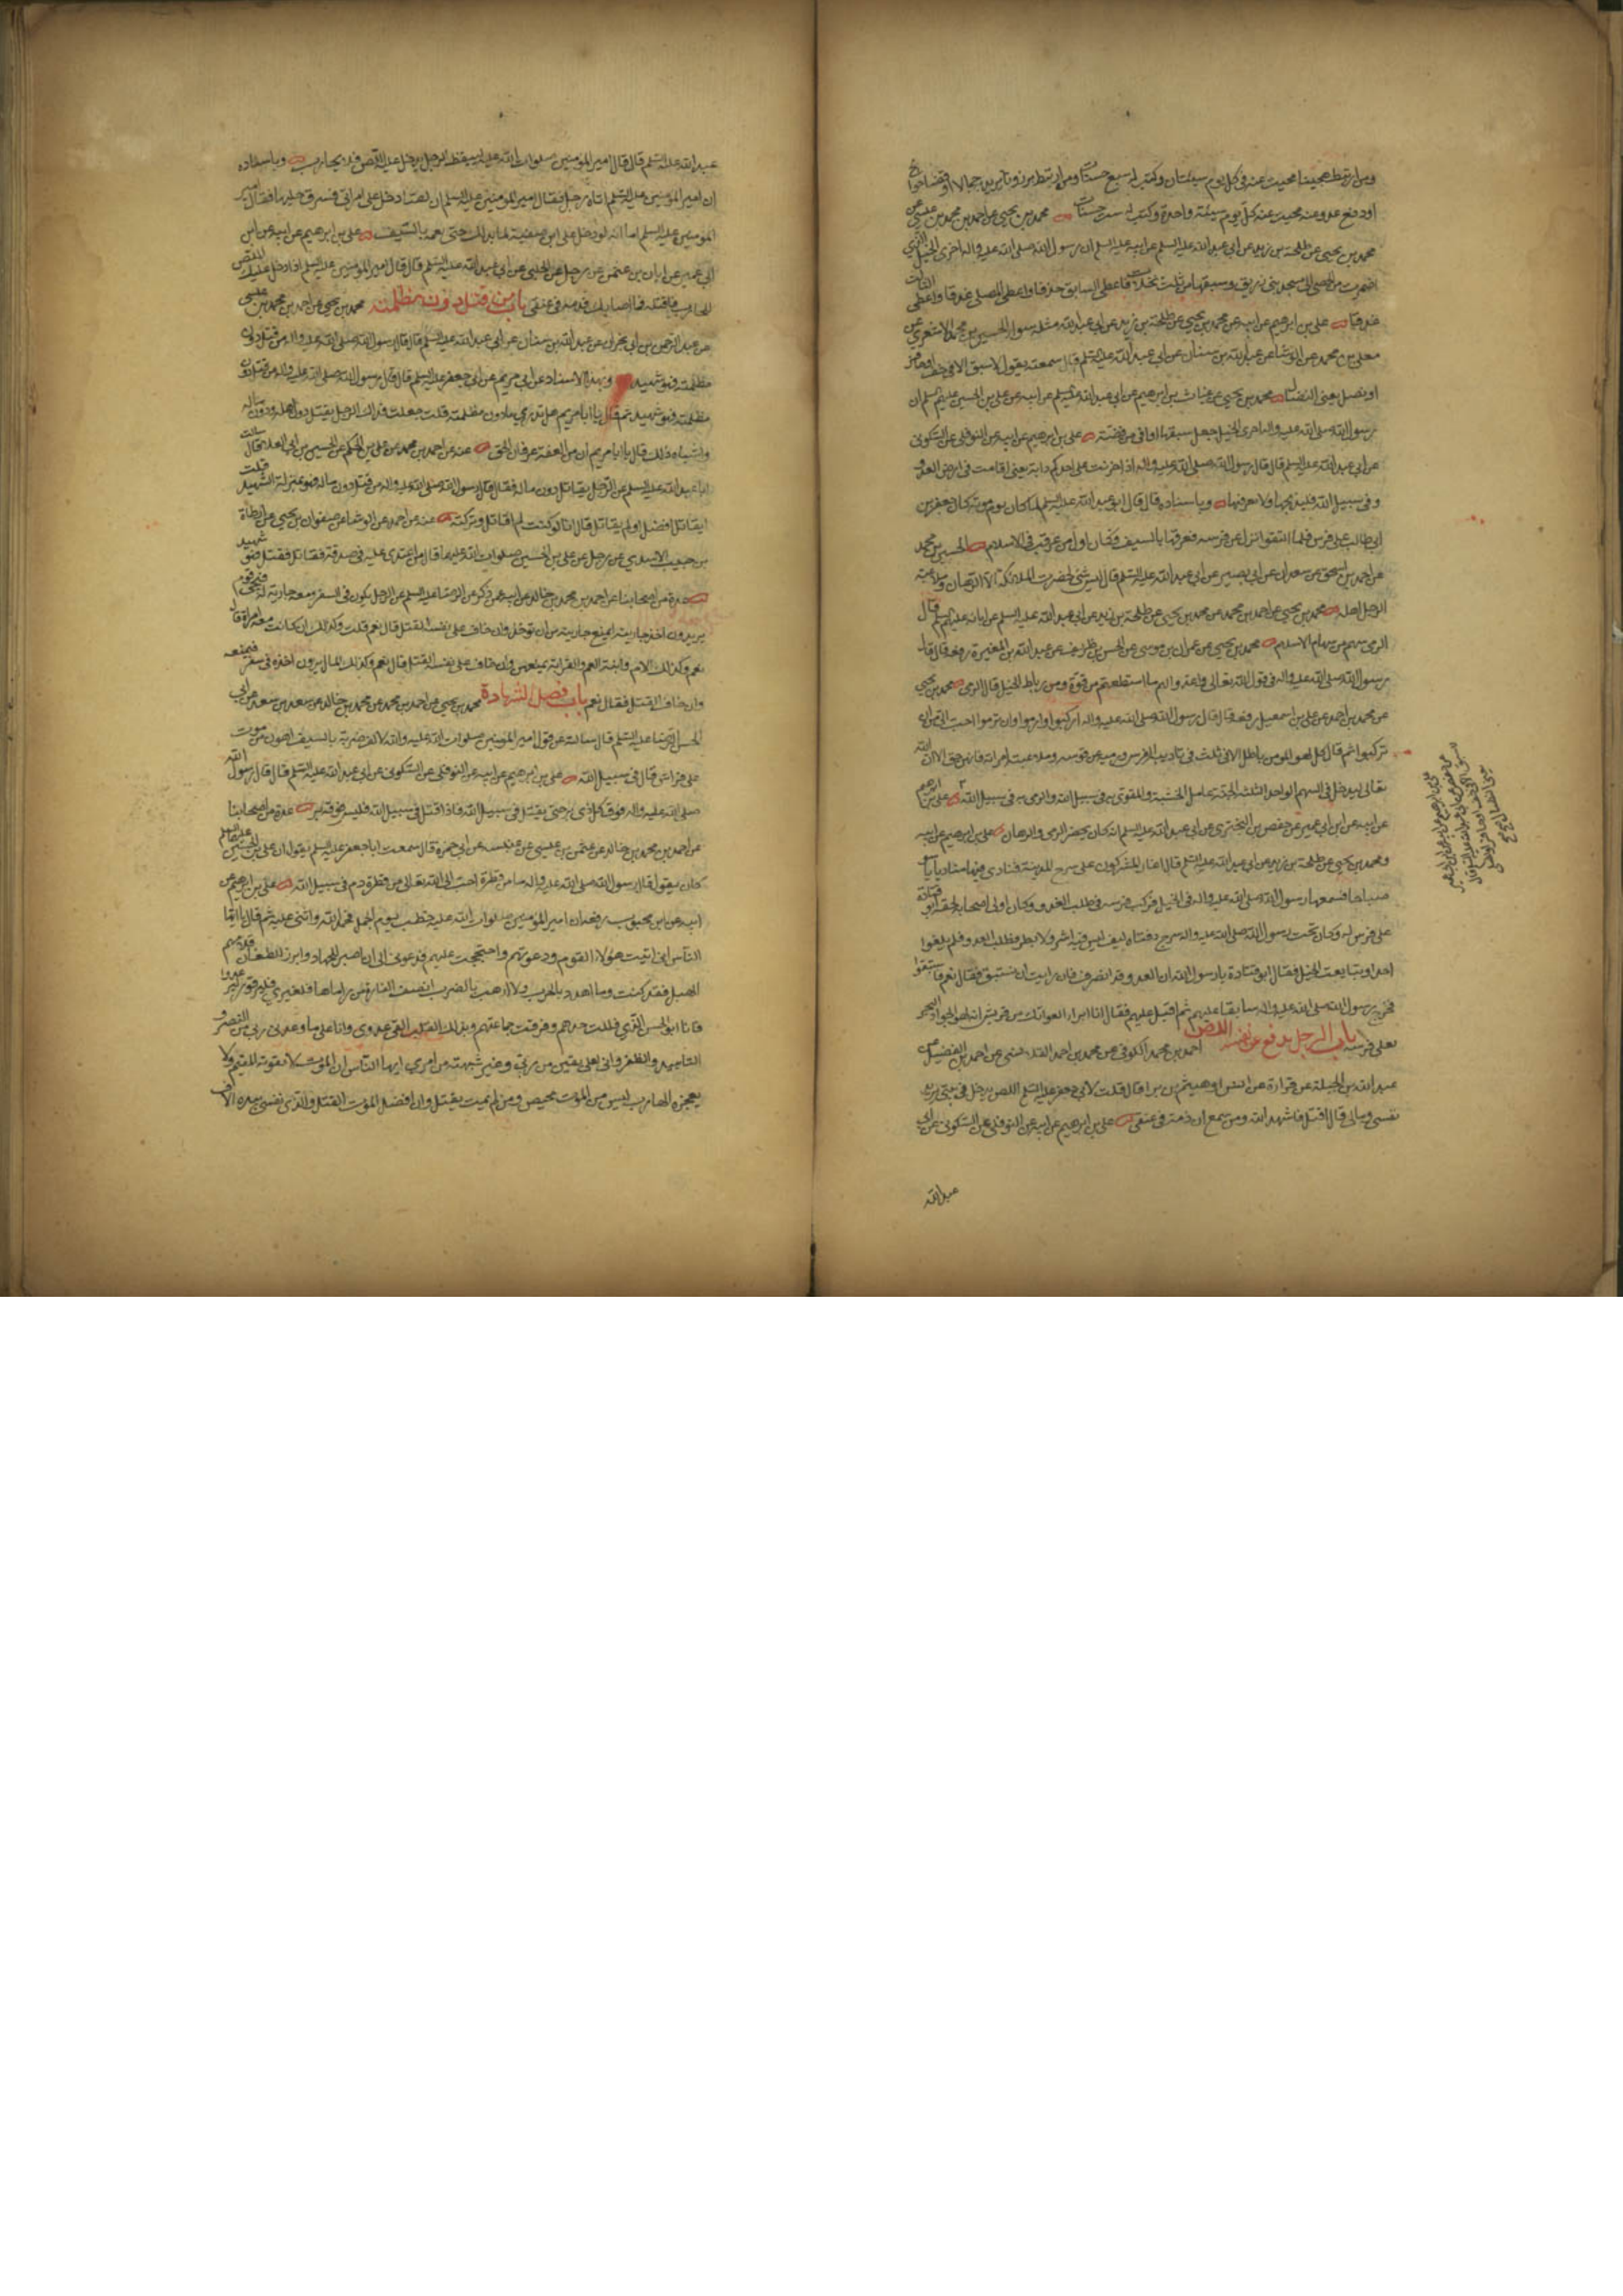 ومن ارتبط هجينا محيت عنه في كل يوم سيئتان وكتب له سبع حسنات ومن ارتبط برذونا يريد به جمالا او قضاء حوائج
او دفع عدو عنه محيت عنه كل يوم سيئة واحدة وكتب له ست حسنات محمد بن يحيى عن احمد بن محمد بن عيسى عن
محمد بن يحيى عن طلحة بن زيد عن ابي عبد الله عليه السلم عن ابيه عليه السلم ان رسول الله صلى الله عليه واله اجرى الخيل التي
اضمرت من الحصى الى مسجد بني زريق وسبقها من ثلث نخلات فاعطى السابق عذقا واعطى المصلي عذقا واعطى الثالث
عذقا علي بن ابرهيم عن ابيه عن محمد بن يحيى عن طلحة بن زيد عن ابي عبد الله مثله سواء الحسين بن محمد الاشعري عن
معلى بن محمد عن الوشا عن عبد الله بن سنان عن ابي عبد الله عليه السلم قال سمعته يقول لا سبق الا في خف او حافر
او نصل يعني النضال محمد بن يحيى عن غياث بن ابرهيم عن ابي عبد الله عليه السلم عن ابيه عن علي بن الحسين عليهم السلم ان
رسول الله صلى الله عليه واله اجرى الخيل وجعل سبقها اواقي من فضة علي بن ابرهيم عن ابيه عن النوفلي عن السكوني
عن ابي عبد الله عليه السلم قال قال رسول الله صلى الله عليه واله اذا حرنت على احدكم دابة يعني اقامت في ارض العدو
وفي سبيل الله فليذبحها ولا يعرقبها وباسناده قال قال ابو عبد الله عليه السلم لما كان يوم موتة كان جعفر بن
ابي طالب على فرس فلما التقوا نزل عن فرسه فعرقبها بالسيف فكان اول من عرقب في الاسلام الحسين بن محمد
عن احمد بن اسحق عن سعدان عن ابي بصير عن ابي عبد الله عليه السلم قال ليس شيء تحضره الملائكة الا الرهان وملاعبة
الرجل اهله محمد بن يحيى عن احمد بن محمد عن محمد بن يحيى عن طلحة بن زيد عن ابي عبد الله عليه السلم عن ابائه عليهم السلم قال
الرمي سهم من سهام الاسلام محمد بن يحيى عن عمران بن موسى عن الحسن بن ظريف عن عبد الله بن المغيرة رفعه قال قال
رسول الله صلى الله عليه واله في قول الله تعالى واعدوا لهم ما استطعتم من قوة ومن رباط الخيل قال الرمي محمد بن يحيى
عن محمد بن احمد عن علي بن اسمعيل رفعه قال قال رسول الله صلى الله عليه واله اركبوا وارموا وان ترموا احب الي من ان
تركبوا ثم قال كل لهو المومن باطل الا في ثلث في تاديبه الفرس ورميه عن قوسه وملاعبته امراته فانهن حق الا ان الله
تعالى ليدخل في السهم الواحد الثلثة الجنة عامل الخشبة والمقوي به في سبيل الله والرامي به في سبيل الله علي بن ابرهيم
عن ابيه عن ابن ابي عمير عن حفص بن البختري عن ابي عبد الله عليه السلم انه كان يحضر الرمي والرهان علي بن ابرهيم عن ابيه
ومحمد بن يحيى عن طلحة بن زيد عن ابي عبد الله عليه السلم قال اغار المشركون على سرح المدينة فنادى فيها مناديا
صباحاه فسمعها رسول الله صلى الله عليه واله في الخيل فركب فرسه في طلب العدو وكان اول اصحابه لحقه ابو قتادة
على فرس له وكان تحت رسول الله صلى الله عليه واله سرج دفتاه ليف ليس فيه اشر ولا بطر فطلب العدو فلم يلقوا
احدا وتتابعت الخيل فقال ابو قتادة يا رسول الله ان العدو قد انصرف فان رايت ان نستبق فقال نعم فاستبقوا
فخرج رسول الله صلى الله عليه واله سابقا عليهم ثم اقبل عليهم فقال انا ابن العواتك من قريش انه لهو الجواد البحر
يعني فرسه باب الرجل يدفع عن نفسه اللص احمد بن محمد الكوفي عن محمد بن احمد القلانسي عن احمد بن الفضيل عن
عبد الله بن الجبلة عن فزارة عن انس او هيثم بن برا قال قلت لابي جعفر عليه السلم اللص يدخل في بيتي يريد
نفسي ومالي قال اقتل فاشهد الله ومن سمع ان دمه في عنقي علي بن ابرهيم عن ابيه عن النوفلي عن السكوني عن ابي
عبد الله
علي بن ابرهيم عن ابيه عن ابن ابي عمير
عن حفص عن ابي عبد الله عليه السلم قال
لا سبق الا في خف او حافر او نصل
يعني النضال
عبد الله عليه السلم قال قال امير المؤمنين صلوات الله عليه ان الله ليمقت الرجل يدخل عليه اللص فلا يحارب وباسناده
ان امير المؤمنين عليه السلم اتاه رجل فقال امير المؤمنين عليه السلم ان لصا دخل على امراتي فسرق حليها فقال امير
المؤمنين عليه السلم اما انه لو دخل على ابن صفية لما رضي بذلك حتى يعمه بالسيف علي بن ابرهيم عن ابيه عن ابن
ابي عمير عن ابان بن عثمن عن رجل عن الحلبي عن ابي عبد الله عليه السلم قال قال امير المؤمنين عليه السلم اذا دخل عليك اللص
المحارب فاقتله فما اصابك فدمه في عنقي باب من قتل دون مظلمته محمد بن يحيى عن احمد بن محمد بن عيسى
عن عبد الرحمن بن ابي نجران عن عبد الله بن سنان عن ابي عبد الله عليه السلم قال قال رسول الله صلى الله عليه واله من قتل دون
مظلمته فهو شهيد وبهذا الاسناد عن ابي مريم عن ابي جعفر عليه السلم قال قال رسول الله صلى الله عليه واله من قتل دون
مظلمته فهو شهيد ثم قال يا ابا مريم هل تدري ما دون مظلمته قلت جعلت فداك الرجل يقتل دون اهله ودون ماله
واشباه ذلك قال يا ابا مريم ان من الفقه عرفان الحق عنه عن احمد بن محمد عن علي بن الحكم عن الحسين بن ابي العلا قال سالت
ابا عبد الله عليه السلم عن الرجل يقاتل دون ماله فقال قال رسول الله صلى الله عليه واله من قتل دون ماله فهو بمنزلة الشهيد قلت
ايقاتل افضل او لم يقاتل قال انا لو كنت لم اقاتل وتركته عنه عن احمد عن الوشا عن صفوان بن يحيى عن ارطاة
بن حبيب الاسدي عن رجل عن علي بن الحسين صلوات الله عليهما قال من اعتدي عليه في صدقة فقاتل فقتل فهو شهيد
عدة من اصحابنا عن احمد بن محمد بن خالد عن ابيه عمن ذكره عن الرضا عليه السلم عن الرجل يكون في السفر ومعه جارية له فيجيء قوم
يريدون اخذ جاريته ايمنع جاريته من ان توخذ وان خاف على نفسه القتل قال نعم قلت وكذلك ان كانت معه امراة قال
نعم وكذلك الام وابنة العم والقرابة يمنعهن وان خاف على نفسه القتل قال نعم وكذلك المال يريدون اخذه في سفر فيمنعه
وان خاف القتل فقال نعم باب فضل الشهادة محمد بن يحيى عن احمد بن محمد عن محمد بن خالد عن سعد بن سعد عن ابي
الحسن الرضا عليه السلم قال سالته عن قول امير المؤمنين صلوات الله عليه والله لالف ضربة بالسيف اهون من موت
على فراش قال في سبيل الله علي بن ابرهيم عن ابيه عن النوفلي عن السكوني عن ابي عبد الله عليه السلم قال قال رسول الله
صلى الله عليه واله فوق كل ذي بر حتى يقتل في سبيل الله فاذا قتل في سبيل الله فليس فوقه بر عدة من اصحابنا
عن احمد بن محمد بن خالد عن عثمن بن عيسى عن عنبسة عن ابي حمزة قال سمعت ابا جعفر عليه السلم يقول ان علي بن الحسين عليهما السلم
كان يقول قال رسول الله صلى الله عليه واله ما من قطرة احب الى الله تعالى من قطرة دم في سبيل الله علي بن ابرهيم عن
ابيه عن ابن محبوب رفعه ان امير المؤمنين صلوات الله عليه خطب يوم الجمل فحمد الله واثنى عليه ثم قال يا ايها
الناس اني اتيت هؤلاء القوم ودعوتهم واحتججت عليهم فدعوني الى ان اصبر للجهاد وابرز للطعان فلامهم
الهبل فقد كنت وما اهدد بالحرب ولا ارهب بالضرب انصف القارة من راماها فلغيري فليبرقوا وليرعدوا
فانا ابو الحسن الذي فللت حدهم وفرقت جماعتهم وبذلك القلب القى عدوي وانا على ما وعدني ربي من النصر و
التاييد والظفر واني لعلى يقين من ربي وغير شبهة من امري ايها الناس ان الموت لا يفوته المقيم ولا
يعجزه الهارب ليس من الموت محيص ومن لم يمت يقتل وان افضل الموت القتل والذي نفسي بيده لالف